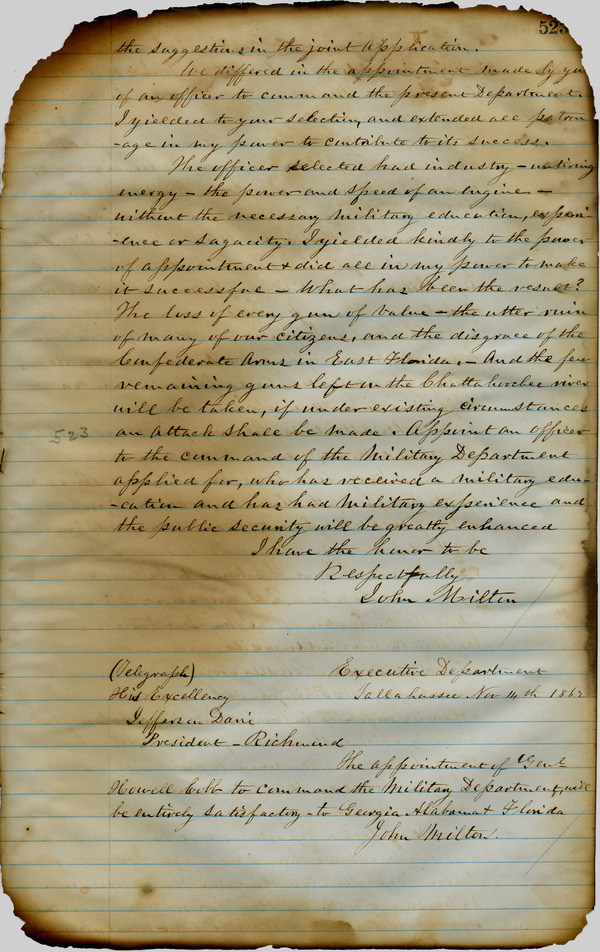 523
the suggestions in the joint application.
We differed in the appointment made by you
of an officer to command the present Department.
I yielded to your selection, and extended all patron
-age in my power to contribute to its success.
The officer selected had industry – untiring
energy – the power and speed of an Engine –
without the necessary Military education, experi-
-ence or sagacity. I yielded kindly to the power
of appointment & did all in my power to make
it successful – What has been the result?
The loss of every gun of value – the utter ruin
of many of our citizens, and the disgrace of the
Confederate Arms in East Florida, – And the few
remaining guns left on the Chattahoochee river
will be taken, if under existing circumstances
523
an attack shall be made. Appoint an officer
to the command of the Military Department
applied for, who has received a military edu-
-cation and has had Military experience and
the public security will be greatly enhanced
I have the honor to be
Respectfully
John Milton
(Telegraph) Executive Department
His Excellency Tallahassee Nov 14th 1862
Jefferson Davis
President – Richmond
The appointment of Genl
Howell Cobb to command the Military Department, will
be entirely satisfactory – to Georgia Alabama & Florida
John Milton.